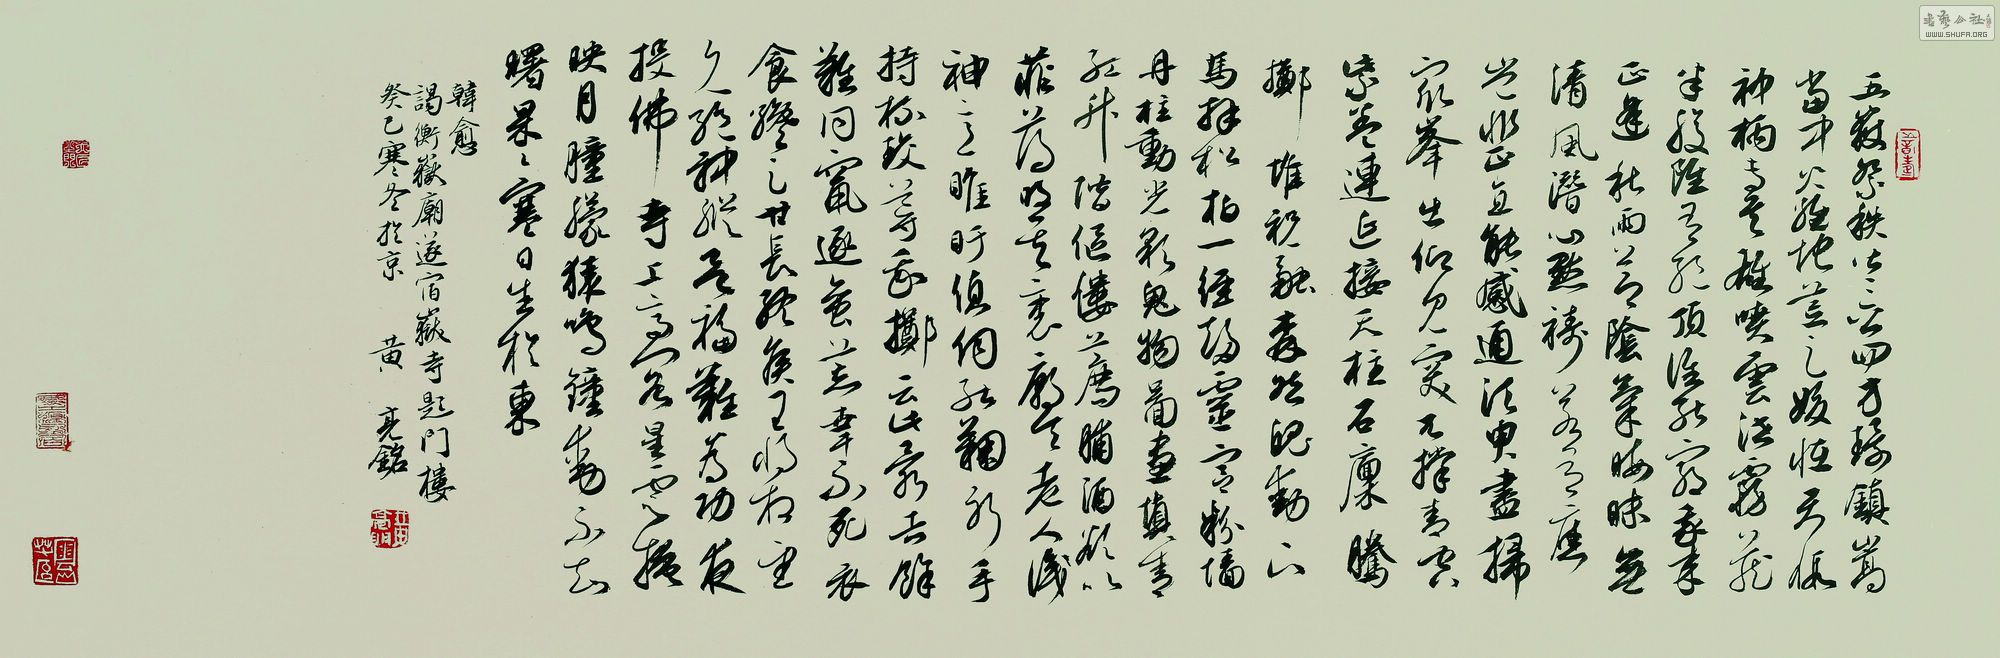 五嶽祭秩皆三公四方環鎮嵩
當中火維地荒足妖怪天假
神柄專其雄噴雲泄霧藏
半腹雖有絕頂誰能窮我來
正逢秋雨節陰氣晦昧無
清風潛心默禱若有應
豈非正直能感通須臾盡掃
眾峯出仰見突兀撐青空
紫蓋連延接天柱石廩騰
擲堆祝融森然魄動下
馬拜松柏一徑趨靈宮粉墻
丹柱動光彩鬼物圖畫填青
紅升階傴僂薦脯酒欲以
菲薄明其衷廟令老人識
神意睢盱偵伺能鞠躬手
持杯珓導我擲云此最吉餘
難同竄逐蠻荒幸不死衣
食纔足甘長終侯王將相望
久絕神縱欲福難為功夜
投佛寺上高閣星雲掩
映月朣朦猿鳴鐘動不知
曙杲杲寒日生於東
韓愈
謁衡嶽廟遂宿嶽寺題門樓
癸巳寒冬於京 黃亮銘
书艺公社
WWW.SHUFA.ORG